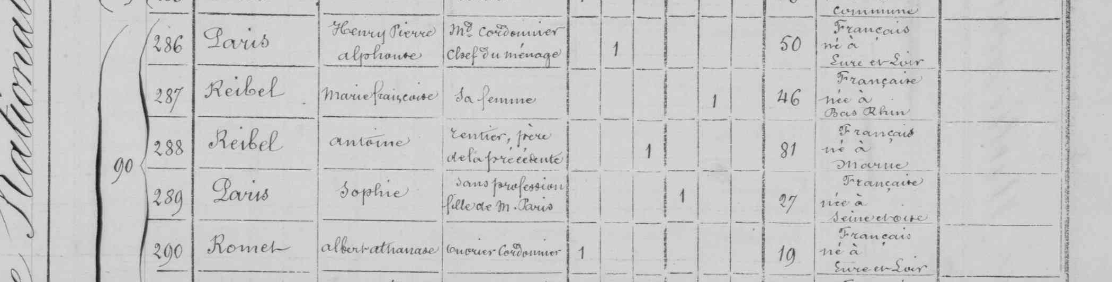 commune
National
90
286 Paris Henry Pierre alphonse Md Cordonnier Chef du ménage 1 50 Français né à Eure et Loir
287 Reibel Marie françoise Sa femme 1 46 Française née à Bas Rhin
288 Reibel antoine rentier, père de la précédente 1 81 Français né à Marne
289 Paris Sophie Sans profession fille de M. Paris 1 27 Française née à Seine et oise
290 Romet albert athanase ouvrier Cordonnier 1 19 Français né à Eure et Loir